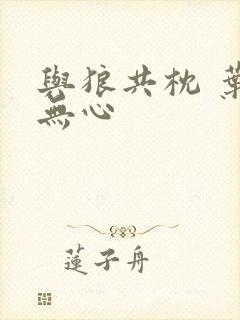 與狼共枕 葉
無心
蓮子舟